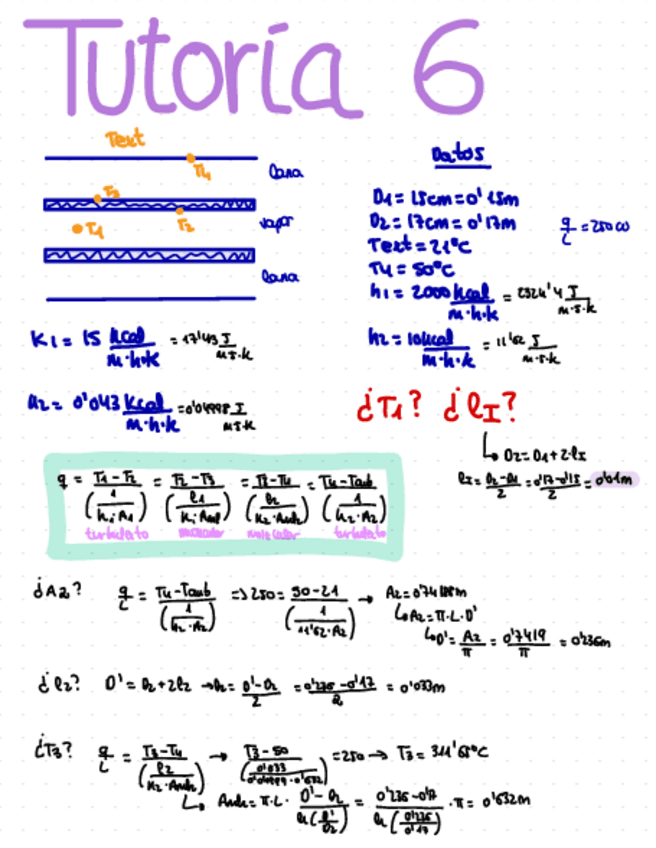 Tutoría 6
Text
T4
lana
T3
T1
T2
vapor
lana
Datos
D1 = 15cm = 0'15m
D2 = 17cm = 0'17m
q/L = 250 W
Text = 21ºC
T4 = 50ºC
h1 = 2000 kcal/m·h·k = 2324'4 J/m·s·k
h2 = 10 kcal/m·h·k = 11'62 J/m·s·k
K1 = 15 kcal/m·h·k = 17'43 J/m·s·k
k2 = 0'043 Kcal/m·h·k = 0'04998 J/m·s·k
¿T1? ¿lI?
D2 = D1 + 2·lI
lI = D2-D1/2 = 0'17-0'15/2 = 0'01m
q = T1-T2/(1/h1·A1) = T2-T3/(l1/k1·Aml) = T3-T4/(l2/k2·Aml2) = T4-Tamb/(1/h2·A2)
turbulato molecular molecular turbulato
¿A2? q/L = T4-Tamb/(1/h2·A2) => 250 = 50-21/(1/11'62·A2) → A2 = 0'7419m
A2 = π·L·D'
D' = A2/π = 0'7419/π = 0'236m
¿l2? D' = D2 + 2l2 → l2 = D'-D2/2 = 0'236-0'17/2 = 0'033m
¿T3? q/L = T3-T4/(l2/k2·Aml2) → T3-50/(0'033/0'04998·0'632) = 250 → T3 = 311'65ºC
Aml2 = π·L· D'-D2/ln(D'/D2) = 0'236-0'17/ln(0'236/0'17) ·π = 0'632m